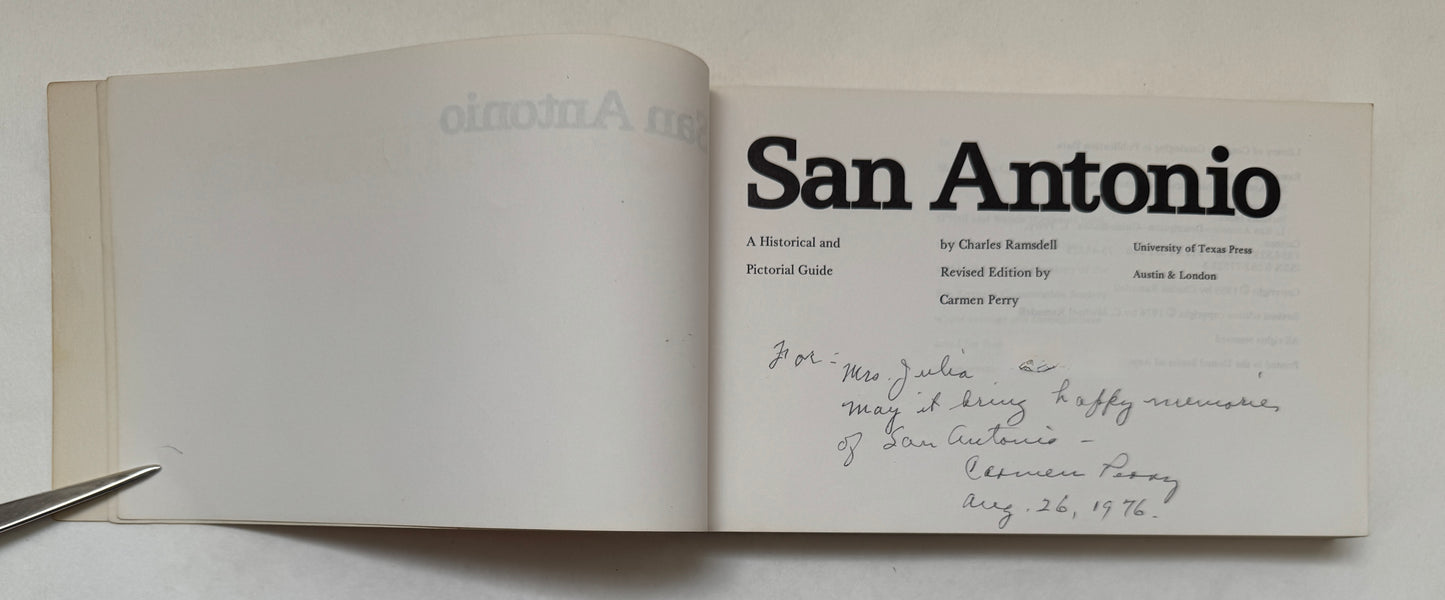 San Antonio
A Historical and
Pictorial Guide
by Charles Ramsdell
Revised Edition by
Carmen Perry
University of Texas Press
Austin & London
For:-
Mrs. Julia
may it bring happy memories
of San Antonio -
Carmen Perry
Aug. 26, 1976.